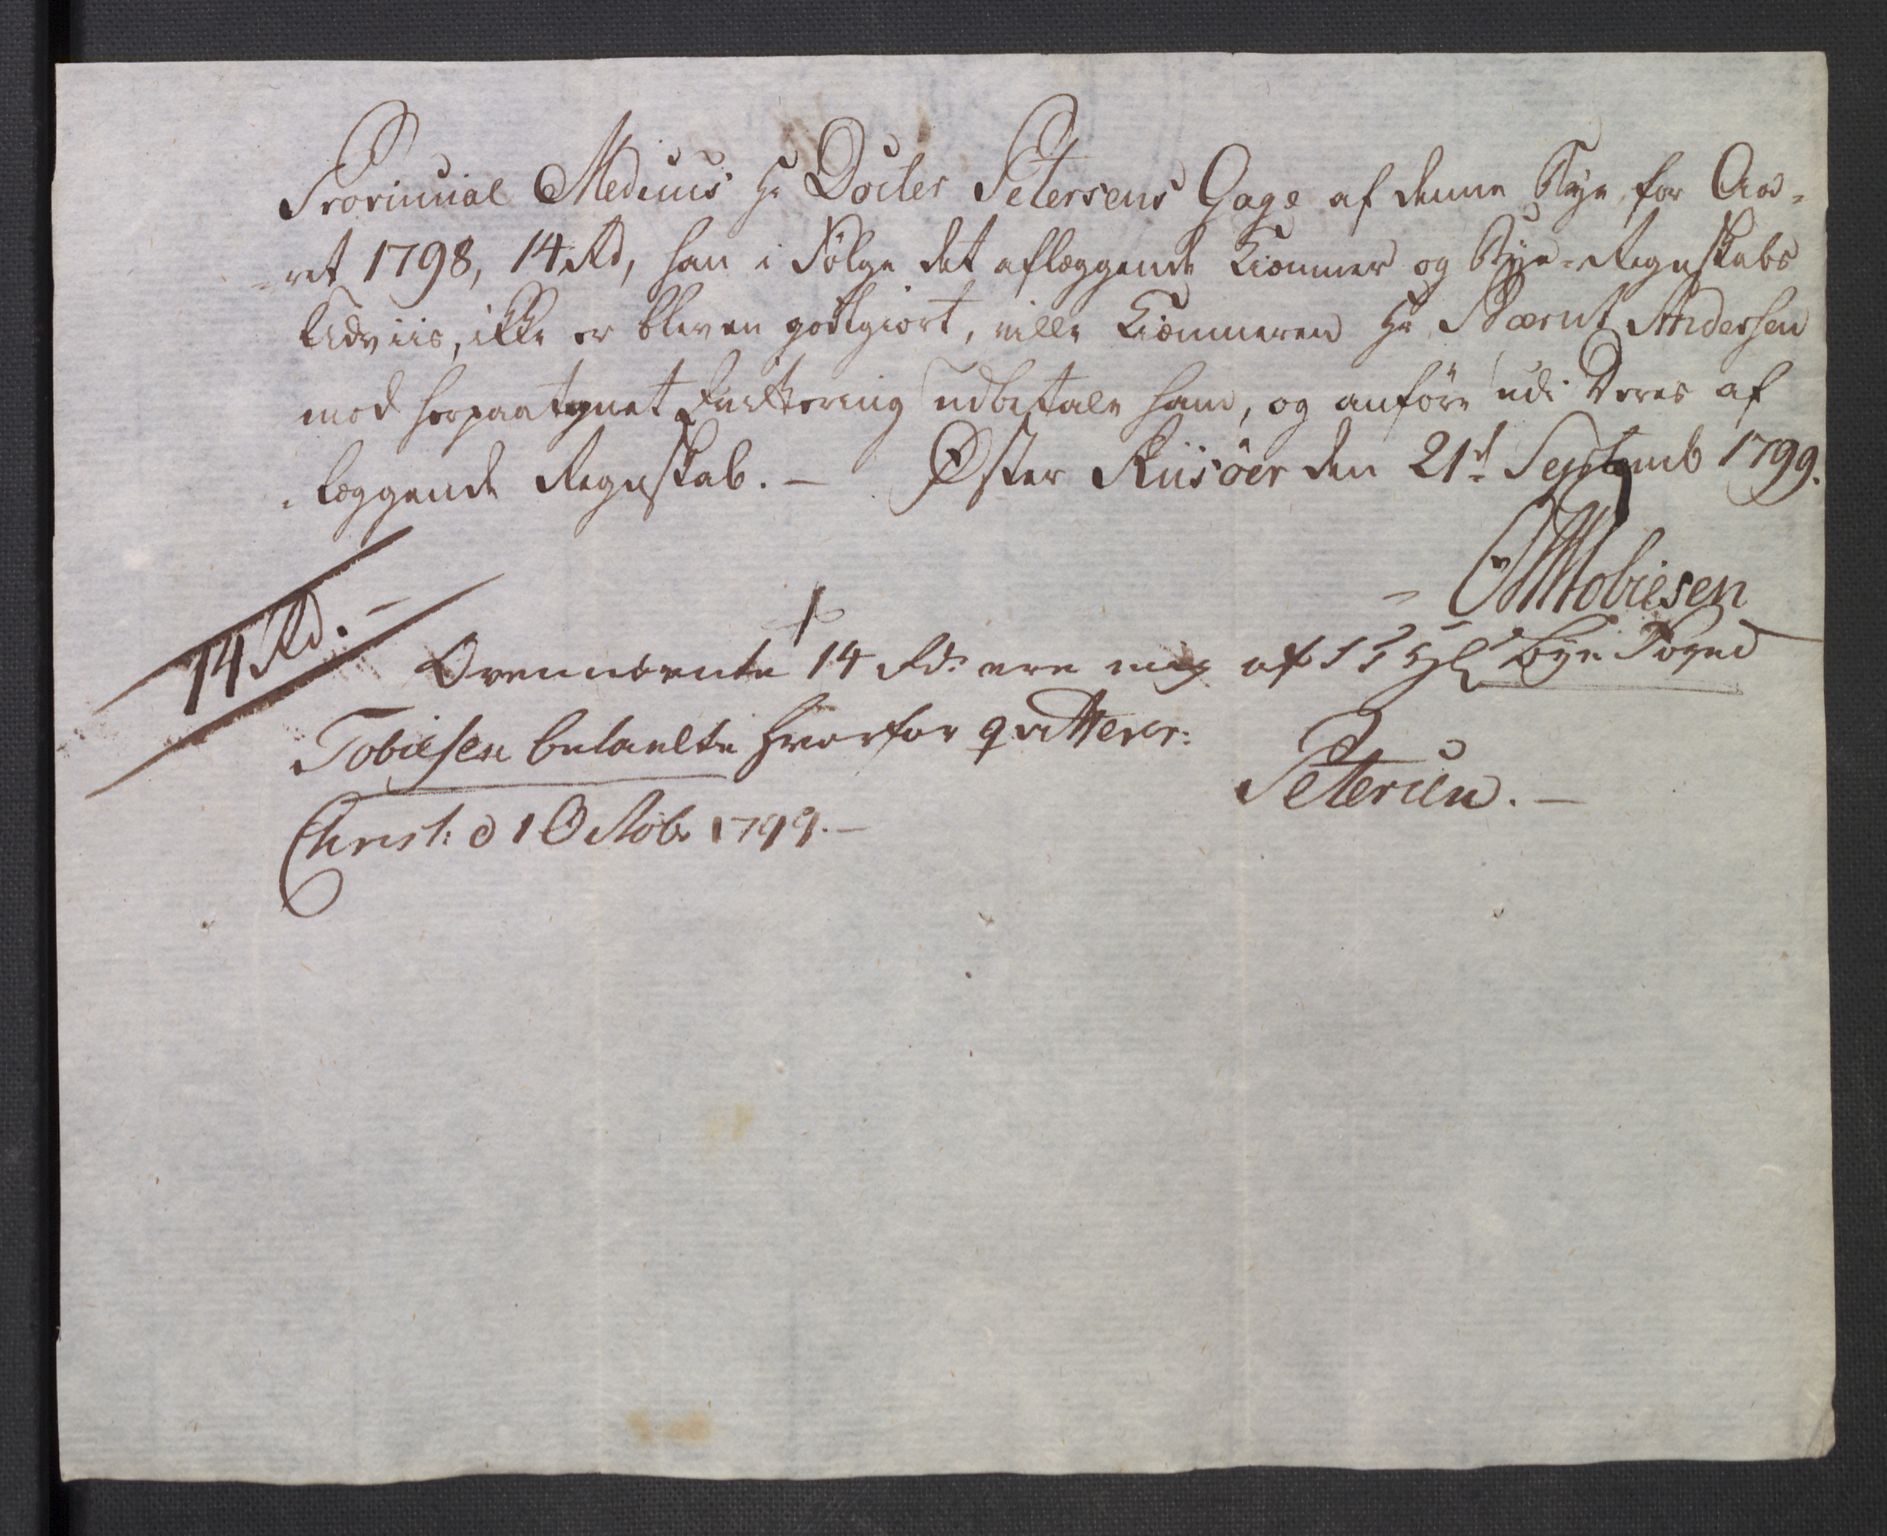 Provincial Medicus Hr Docter Petersens Gage af denne Bye, for Aa-
ret 1798, 14 Rd, han i Følge det aflæggende Kiæmner og Bye-Regnskabs
Udviis, ikke er bleven godtgiort, ville Kiæmneren Hr Baernt Andersen
mod herpaategnet Qvittering udbetale ham, og anføre udi Deres af
læggende Regnskab. — Øster Riisöer den 21d Septemb 1799.
Tobiesen
14 Rd. —
Ovennævnte 14 Rd. ere mig af Bye Foged
Tobiesen betaelte hvorfor qvitterer:
Petersen. —
Christ: d 1 Octobr 1799. —